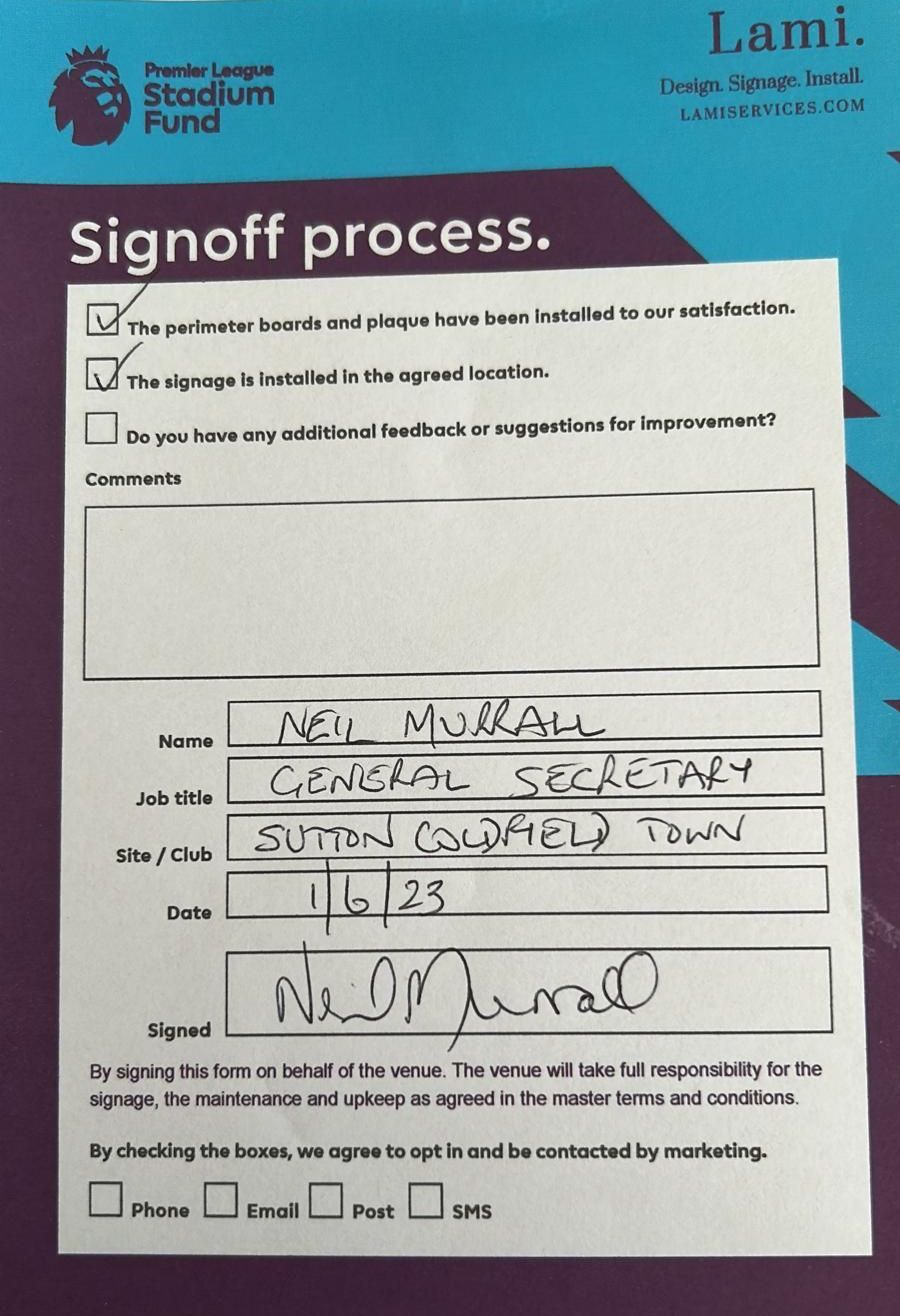 Premier League
Stadium
Fund
Lami.
Design. Signage. Install.
LAMISERVICES.COM
Signoff process.
The perimeter boards and plaque have been installed to our satisfaction.
The signage is installed in the agreed location.
Do you have any additional feedback or suggestions for improvement?
Comments
Name NEIL MURRALL
Job title GENERAL SECRETARY
Site / Club SUTTON COLDFIELD TOWN
Date 1/6/23
Signed Neil Murrall
By signing this form on behalf of the venue. The venue will take full responsibility for the
signage, the maintenance and upkeep as agreed in the master terms and conditions.
By checking the boxes, we agree to opt in and be contacted by marketing.
Phone Email Post SMS